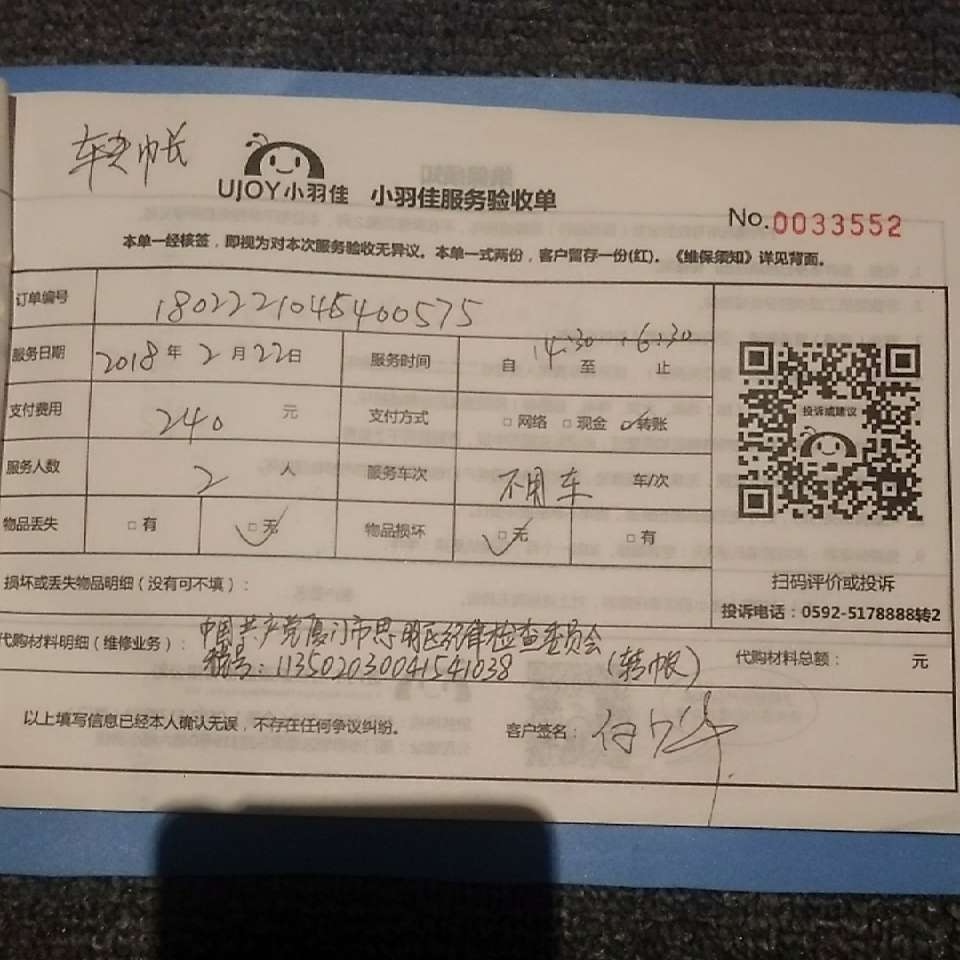 UJOY小羽佳 小羽佳服务验收单
No.0033552
本单一经核签，即视为对本次服务验收无异议。本单一式两份，客户留存一份(红)。《维保须知》详见背面。
订单编号 1802221045400575
服务日期 2018年2月22日 服务时间 自14:30至16:30止
支付费用 240元 支付方式 □网络 □现金 ☑转账
投诉或建议
服务人数 2人 服务车次 不用车 车/次
物品丢失 □有 ☑无 物品损坏 ☑无 □有
损坏或丢失物品明细（没有可不填）：
扫码评价或投诉
投诉电话：0592-5178888转2
代购材料明细（维修业务）：中国共产党厦门市思明区纪律检查委员会
税号：11350203004154103B （转帐）
代购材料总额： 元
以上填写信息已经本人确认无误，不存在任何争议纠纷。 客户签名：